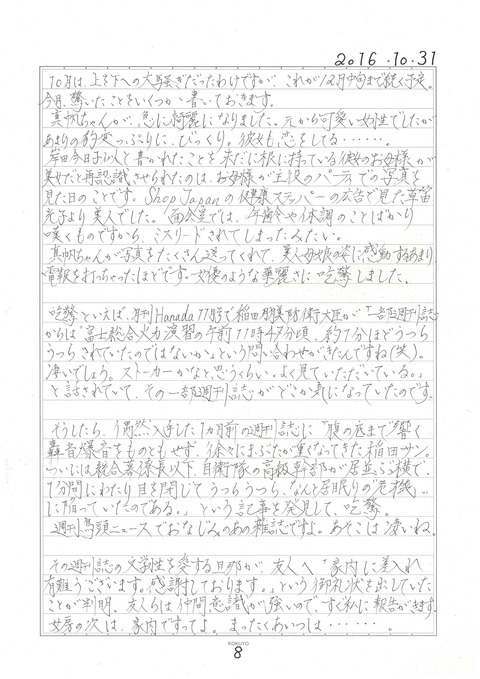 2016.10.31
10月は、上を下への大騒ぎだったわけですが、これが12月中旬まで続く予定。
今月、驚いたことをいくつか書いておきます。
真帆ちゃんが、急に綺麗になりました。元から可愛い女性でしたが
あまりの豹変っぷりに、びっくり。彼女も恋をしてる……。
岸田今日子似と書かれたことを未だに根に持っている彼女のお母様が
美女だと再認識させられたのは、お母様が主役のパーティでの写真を
見た日のことです。Shop Japanの健康ステッパーの広告で見た草笛
光子より美人でした。面会室では、年齢や体調のことばかり
嘆くものですから、ミスリードされてしまったみたい。
真帆ちゃんが写真をたくさん送ってくれて、美人母娘の姿に感動するあまり、
電報を打っちゃったほどです。女優のような華麗さに吃驚しました。
吃驚といえば、月刊Hanada11月号で稲田朋美防衛大臣が「一部週刊誌
からは『富士総合火力演習の午前11時47分頃、約1分ほどうつら
うつらされていたのではないか』という問い合わせがきたんですね(笑)。
凄いでしょう。ストーカーかなと思うくらい、よく見ていただいている。」
と話されていて、その一部週刊誌がどこか気になっていたのです。
そうしたら、偶然入手した1カ月前の週刊誌に「腹の底まで響く
轟音爆音をものともせず、徐々にまぶたが重くなってきた稲田サン。
ついには統合幕僚長以下、自衛隊の高級幹部が居並ぶ横で、
1分間にわたり目を閉じてうつらうつら、なんと居眠りの"危機"
に陥っていたのである。」という記事を発見して、吃驚。
週刊馬頭ニュースでおなじみのあの雑誌ですよ。あそこは凄いね。
その週刊誌の文学性を愛する旦那が、友人へ「家内に差入れ
有難うございます。感謝しております。」という御礼状を出していた
ことが判明。友人らは仲間意識が強いので、すぐ私に報告がきます。
女房の次は、家内ですってよ。まったくあいつは……。
KOKUYO
8